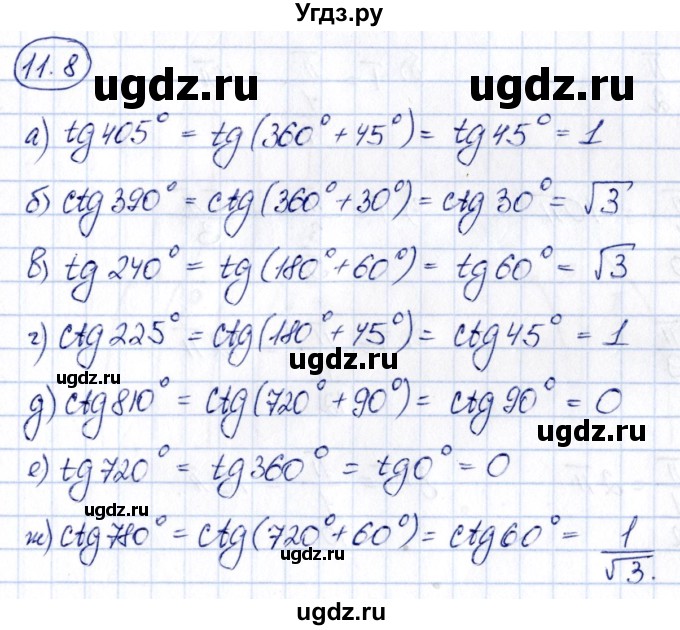 Угдз.ру
11.8
ugdz.ru ugdz.ru
а) tg 405° = tg(360° + 45°) = tg 45° = 1
б) ctg 390° = ctg(360° + 30°) = ctg 30° = √3
в) tg 240° = tg(180° + 60°) = tg 60° = √3
г) ctg 225° = ctg(180° + 45°) = ctg 45° = 1
ugdz.ru
ugdz.ru
д) ctg 810° = ctg(720° + 90°) = ctg 90° = 0
ugdz.ru
е) tg 720° = tg 360° = tg 0° = 0
ж) ctg 780° = ctg(720° + 60°) = ctg 60° = 1/√3.
ugdz.ru
ugdz.ru